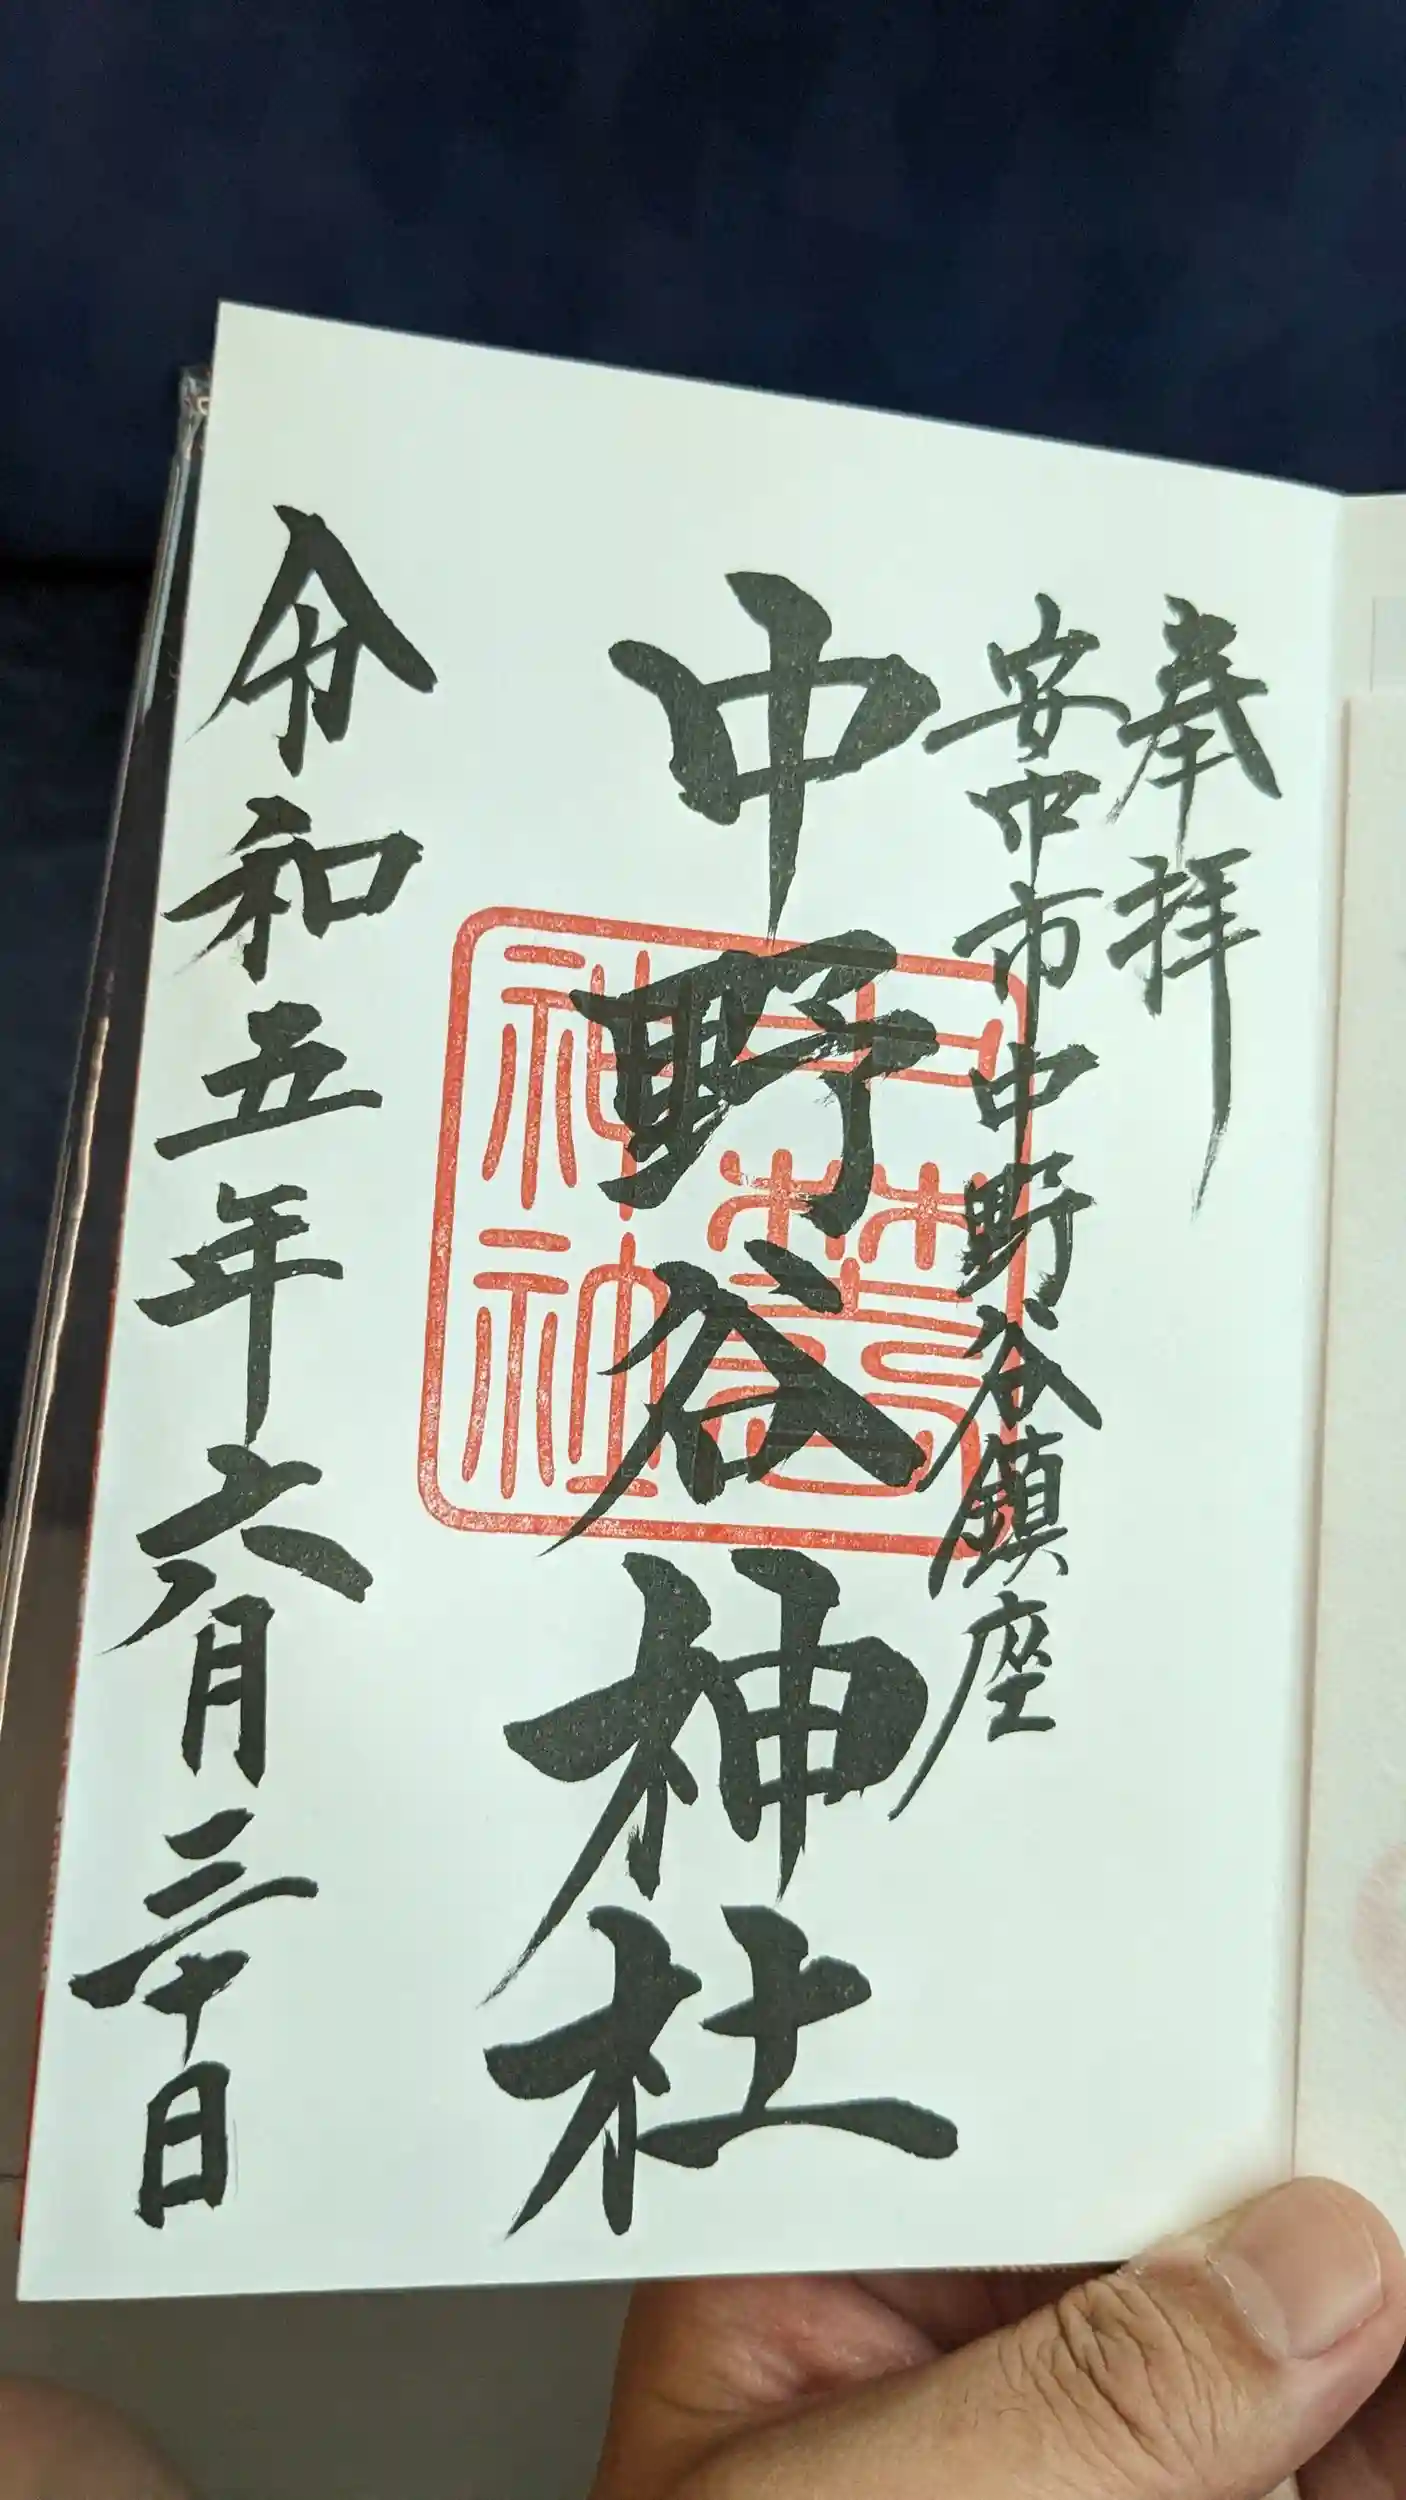 奉拝
安中市中野谷鎮座
中野谷神社
令和五年六月三十日
神社